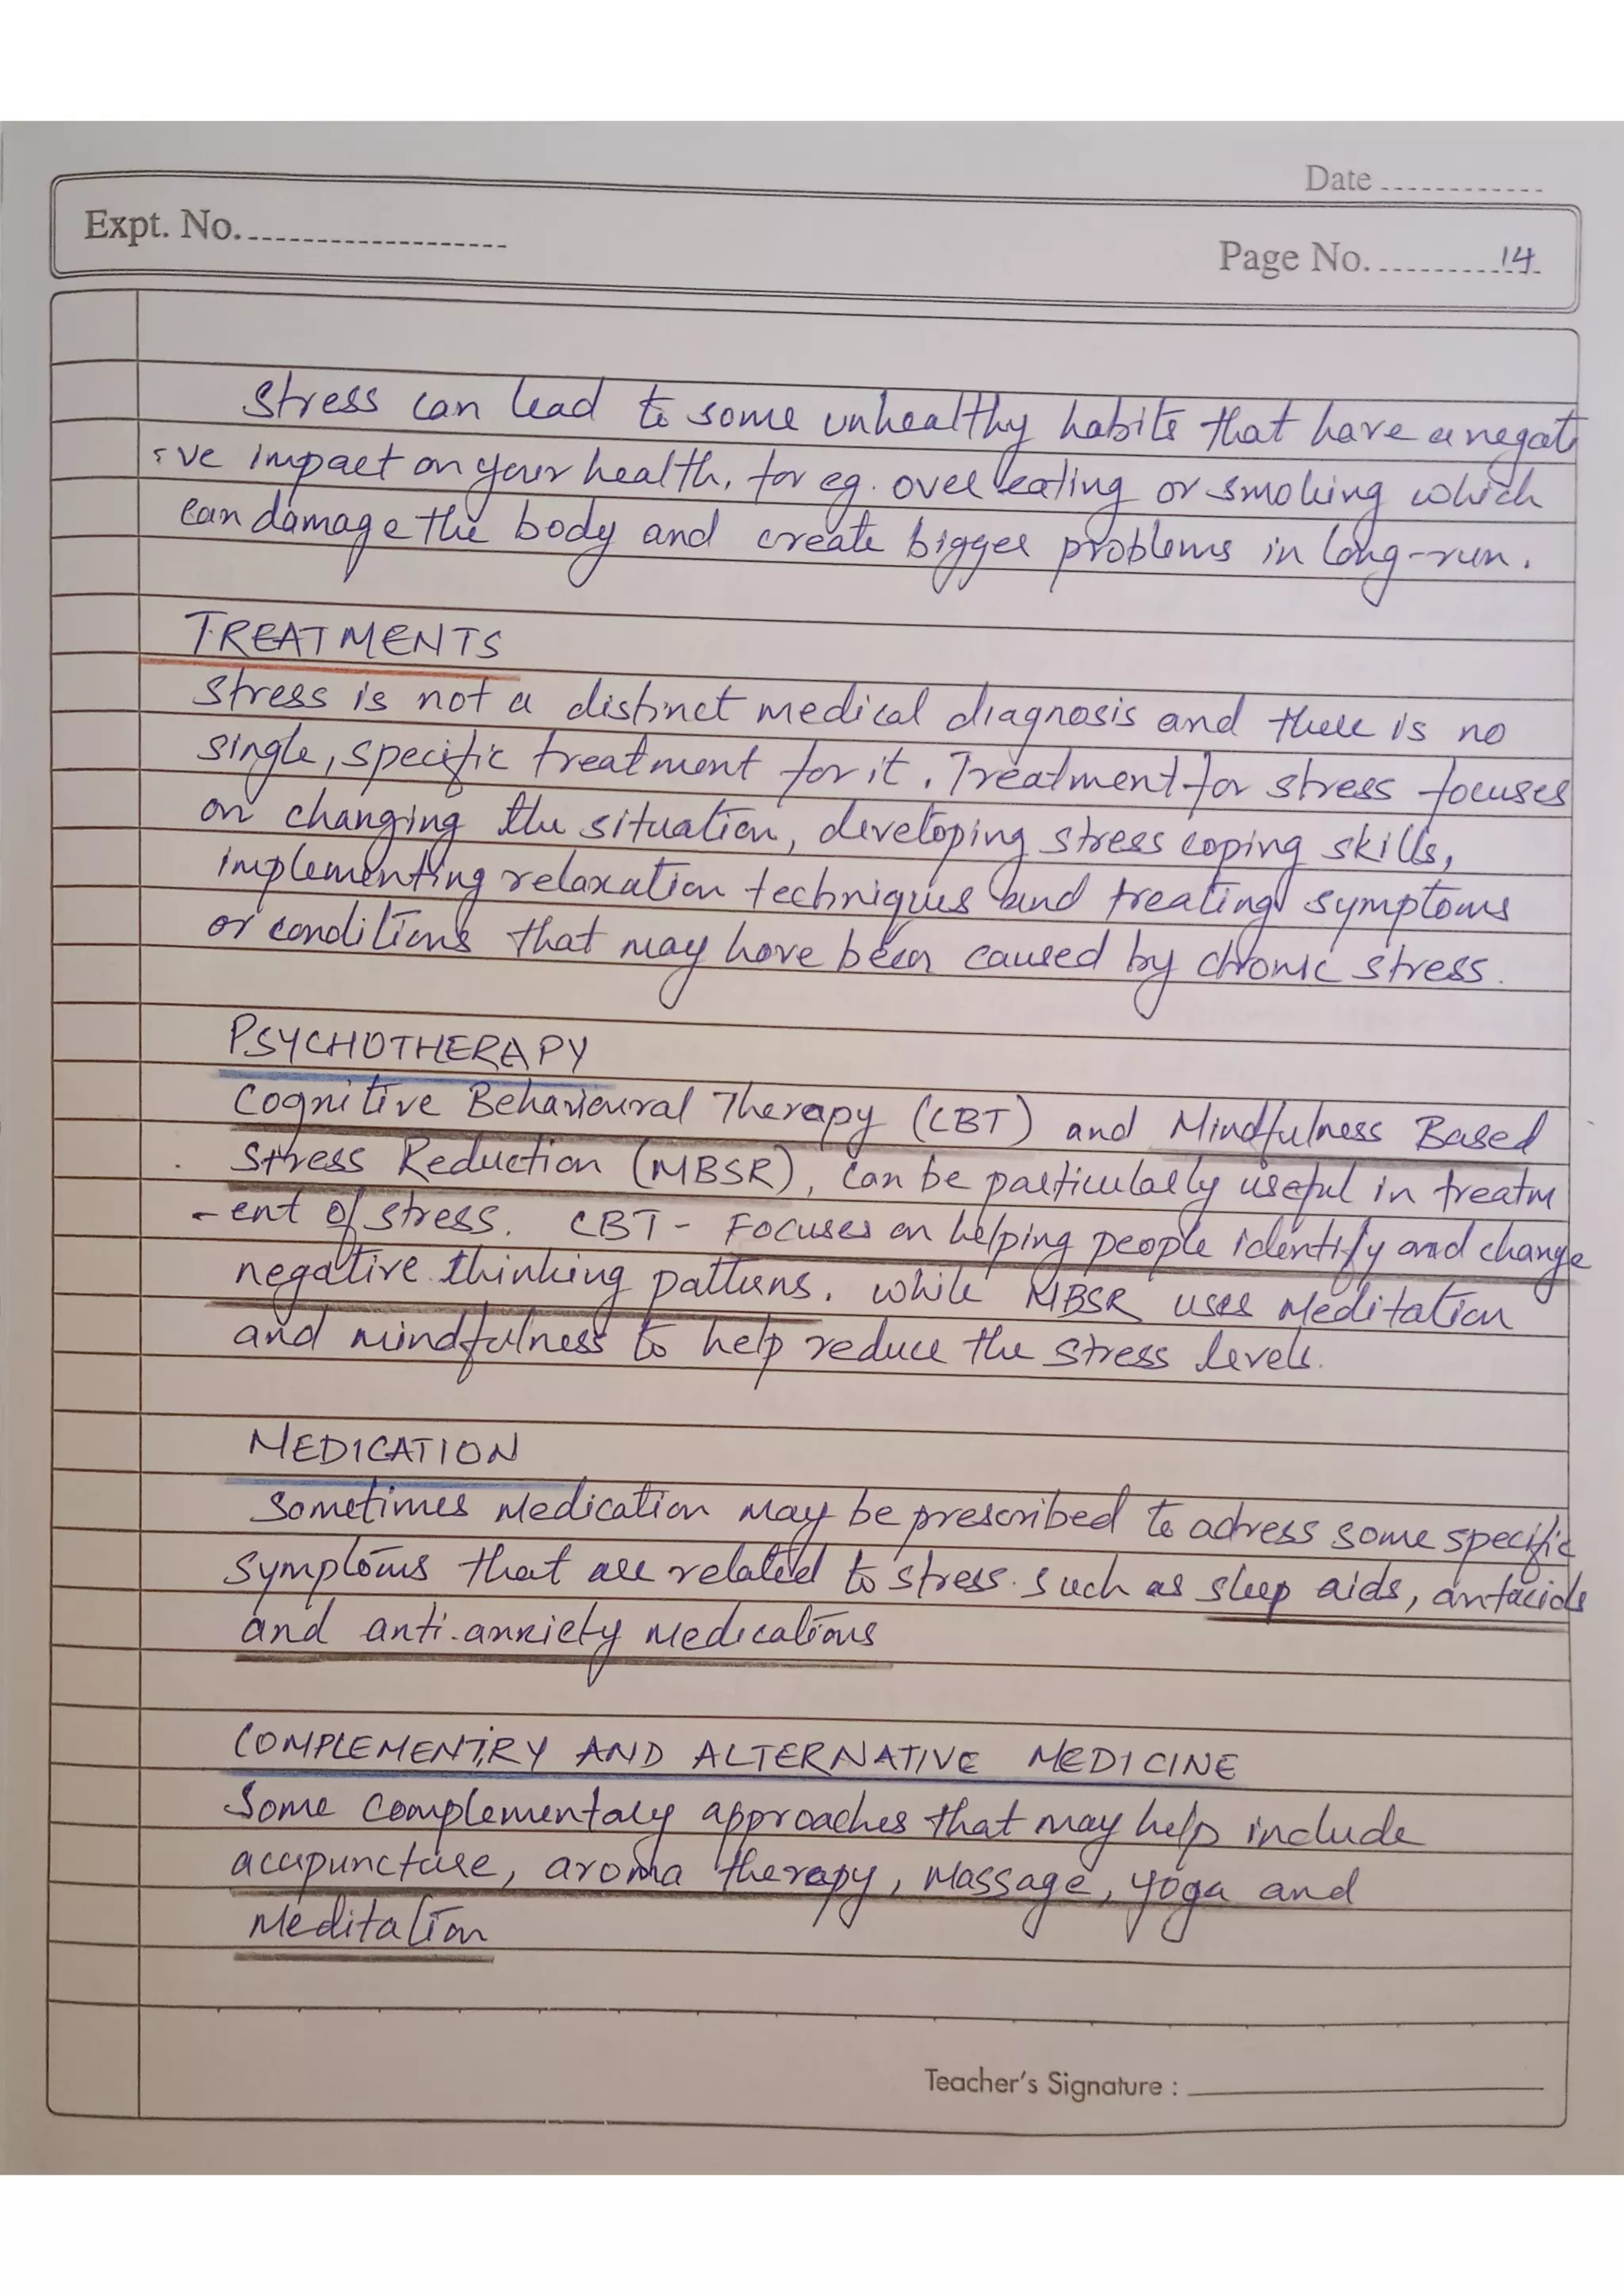 Date
Expt. No.
Page No. 14
Stress can lead to some unhealthy habits that have a negat
ive impact on your health, for eg. over eating or smoking which
can damage the body and create bigger problems in long-run.
TREATMENTS
Stress is not a distinct medical diagnosis and there is no
single, specific treatment for it. Treatment for stress focuses
on changing the situation, developing stress coping skills,
implementing relaxation techniques and treating symptoms
or conditions that may have been caused by chronic stress.
PSYCHOTHERAPY
Cognitive Behavioural Therapy (CBT) and Mindfulness Based
Stress Reduction (MBSR), can be particularly useful in treatm
-ent of stress. CBT - Focuses on helping people identify and change
negative thinking patterns. while MBSR uses Meditation
and mindfulness to help reduce the stress levels.
MEDICATION
Sometimes Medication may be prescribed to adress some specific
symptoms that are related to stress. such as sleep aids, antacids
and anti-anxiety medications
COMPLEMENTIRY AND ALTERNATIVE MEDICINE
Some complementary approaches that may help include
acupuncture, aroma therapy, Massage, yoga and
Meditation
Teacher's Signature :